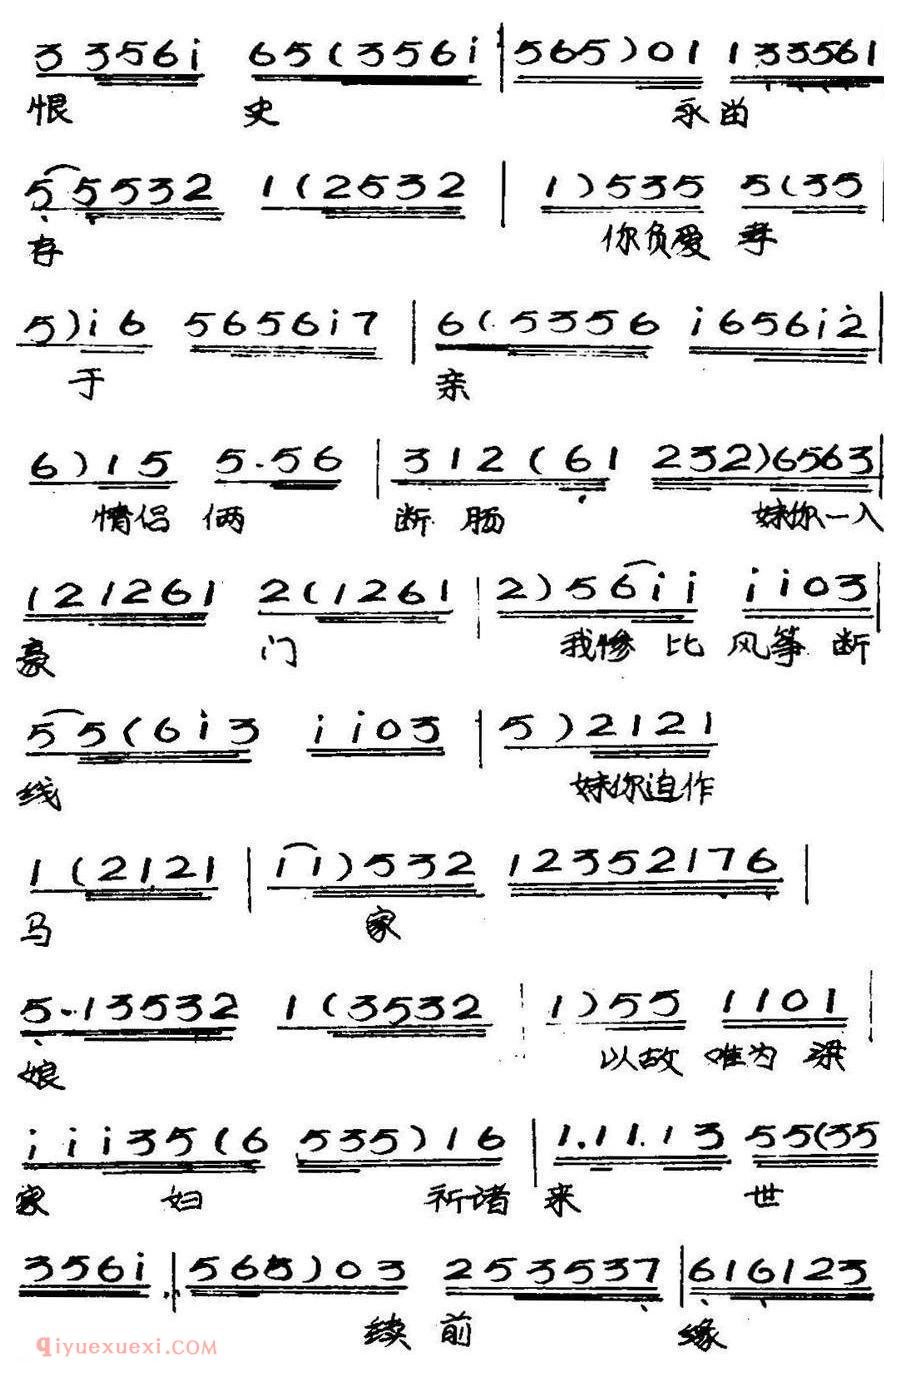 3 3 5 6 i 6 5 ( 3 5 6 i | 5 6 5 ) 0 1 1 3 3 5 6 1
恨 史 永留
5 5 5 3 2 1 ( 2 5 3 2 | 1 ) 5 3 5 5 ( 3 5 |
存 你负爱
5 ) i 6 5 6 5 6 i 7 | 6 ( 5 3 5 6 i 6 5 6 i 2 |
于 亲
6 ) 1 5 5 . 5 6 | 3 1 2 ( 6 1 2 3 2 ) 6 5 6 3 |
情侣 俩 断 肠 妹你一入
1 2 1 2 6 1 2 ( 1 2 6 1 | 2 ) 5 6 i i i i 0 3 |
豪 门 我惨 比 风筝 断
5 5 ( 6 i 3 i i 0 3 | 5 ) 2 1 2 1
线 妹你迫作
1 ( 2 1 2 1 | 1 1 ) 5 3 2 1 2 3 5 2 1 7 6 |
马 家
5 . 1 3 5 3 2 1 ( 3 5 3 2 | 1 ) 5 5 1 1 0 1 |
娘 以故 唯为 梁
i i i 3 5 ( 6 5 3 5 ) 1 6 | 1 . 1 1 . 1 3 5 5 ( 3 5
家 妇 祈诸 来 世
3 5 6 i | 5 6 5 ) 0 3 2 5 3 5 3 7 | 6 1 6 1 2 3
续 前 缘
qiyuexuexi.COM